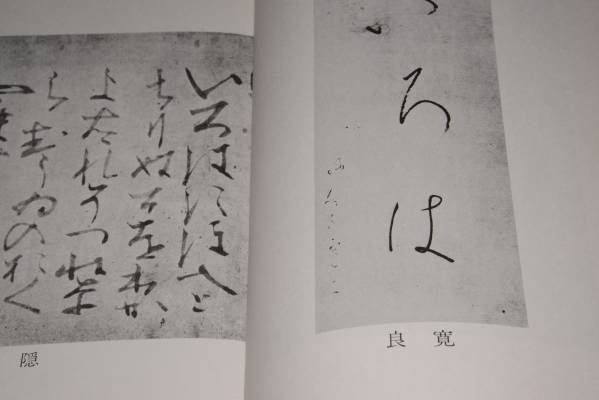 ろは
良寛
いろはにほへと
ちりぬるをわか
よたれそつねな
らむうゐのおく
隠